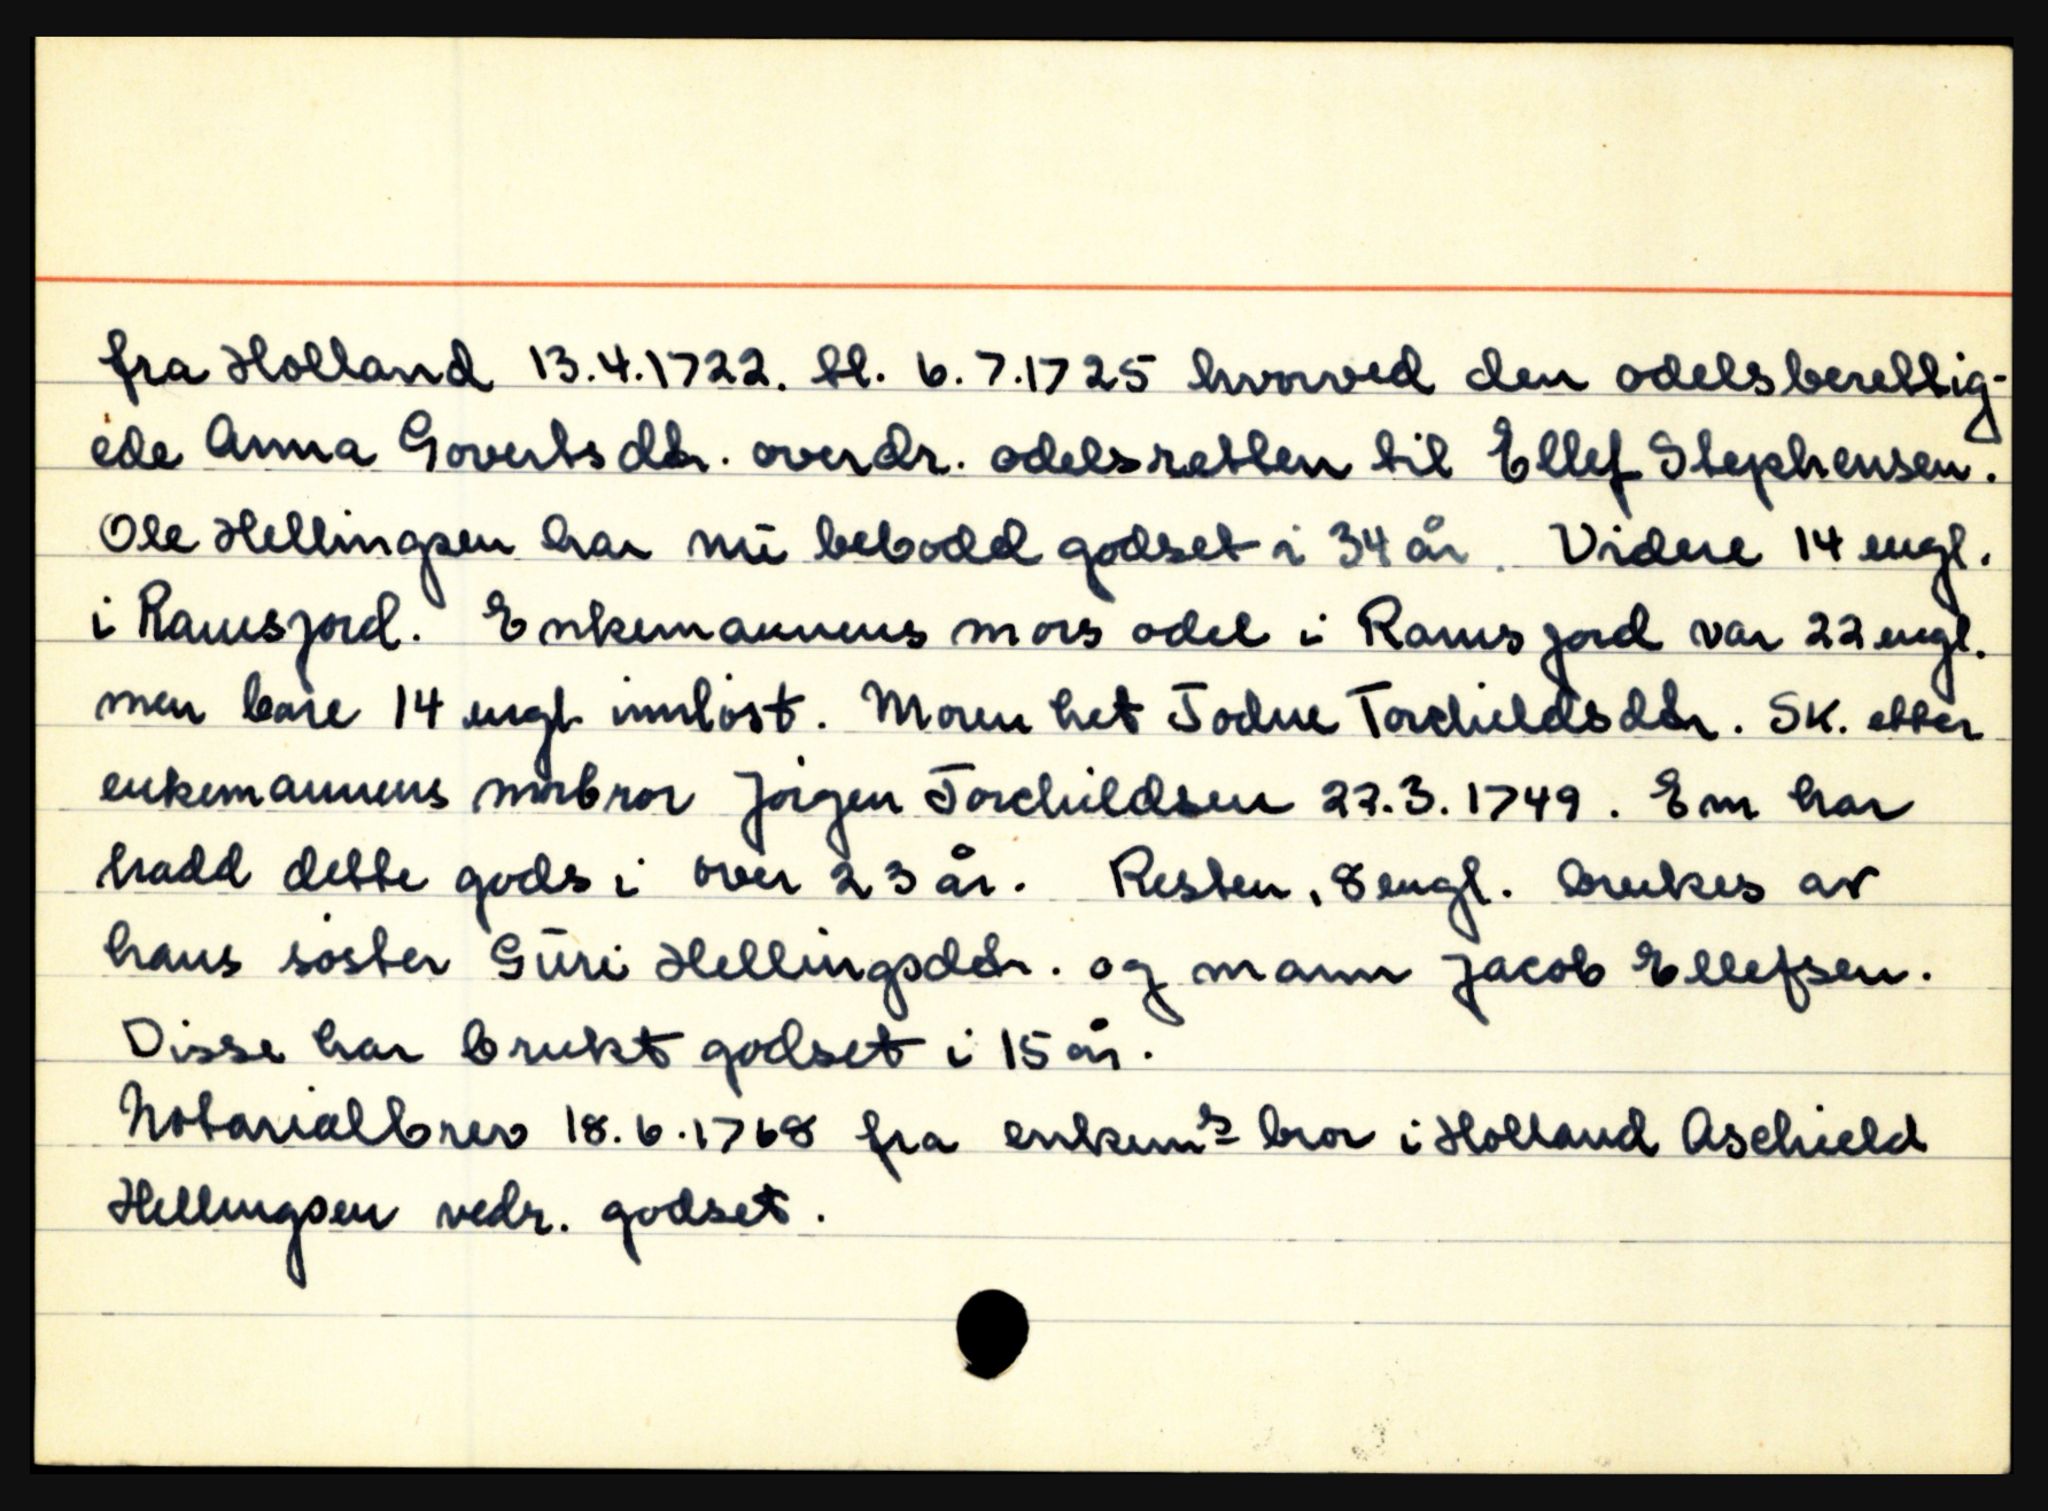 fra Holland 13.4.1722. tl. 6.7.1725 hvorved den odelsberettig-
ede Anna Govertsdtr. overdr. odelsretten til Ellef Stephensen.
Ole Hellingsen har nū bebodd godset i 34 år. Videre 14 engl.
i Ramsjord. Enkemannens mors odel i Ramsjord var 22 engl.
men bare 14 engl innlöst. Moren het Todne Torchildsdtr. SK. etter
enkemannens morbror Jörgen Torchildsen 27.3.1749. Em har
hadd dette gods i over 23 år. Resten, 8 engl. brukes av
hans söster Gūri Hellingsdtr. og mann Jacob Ellefsen.
Disse har brukt godset i 15 år.
Notarialbrev 18.6.1768 fra enkem<sup>s</sup> bror i Holland Aschield
Hellingsen vedr. godset.